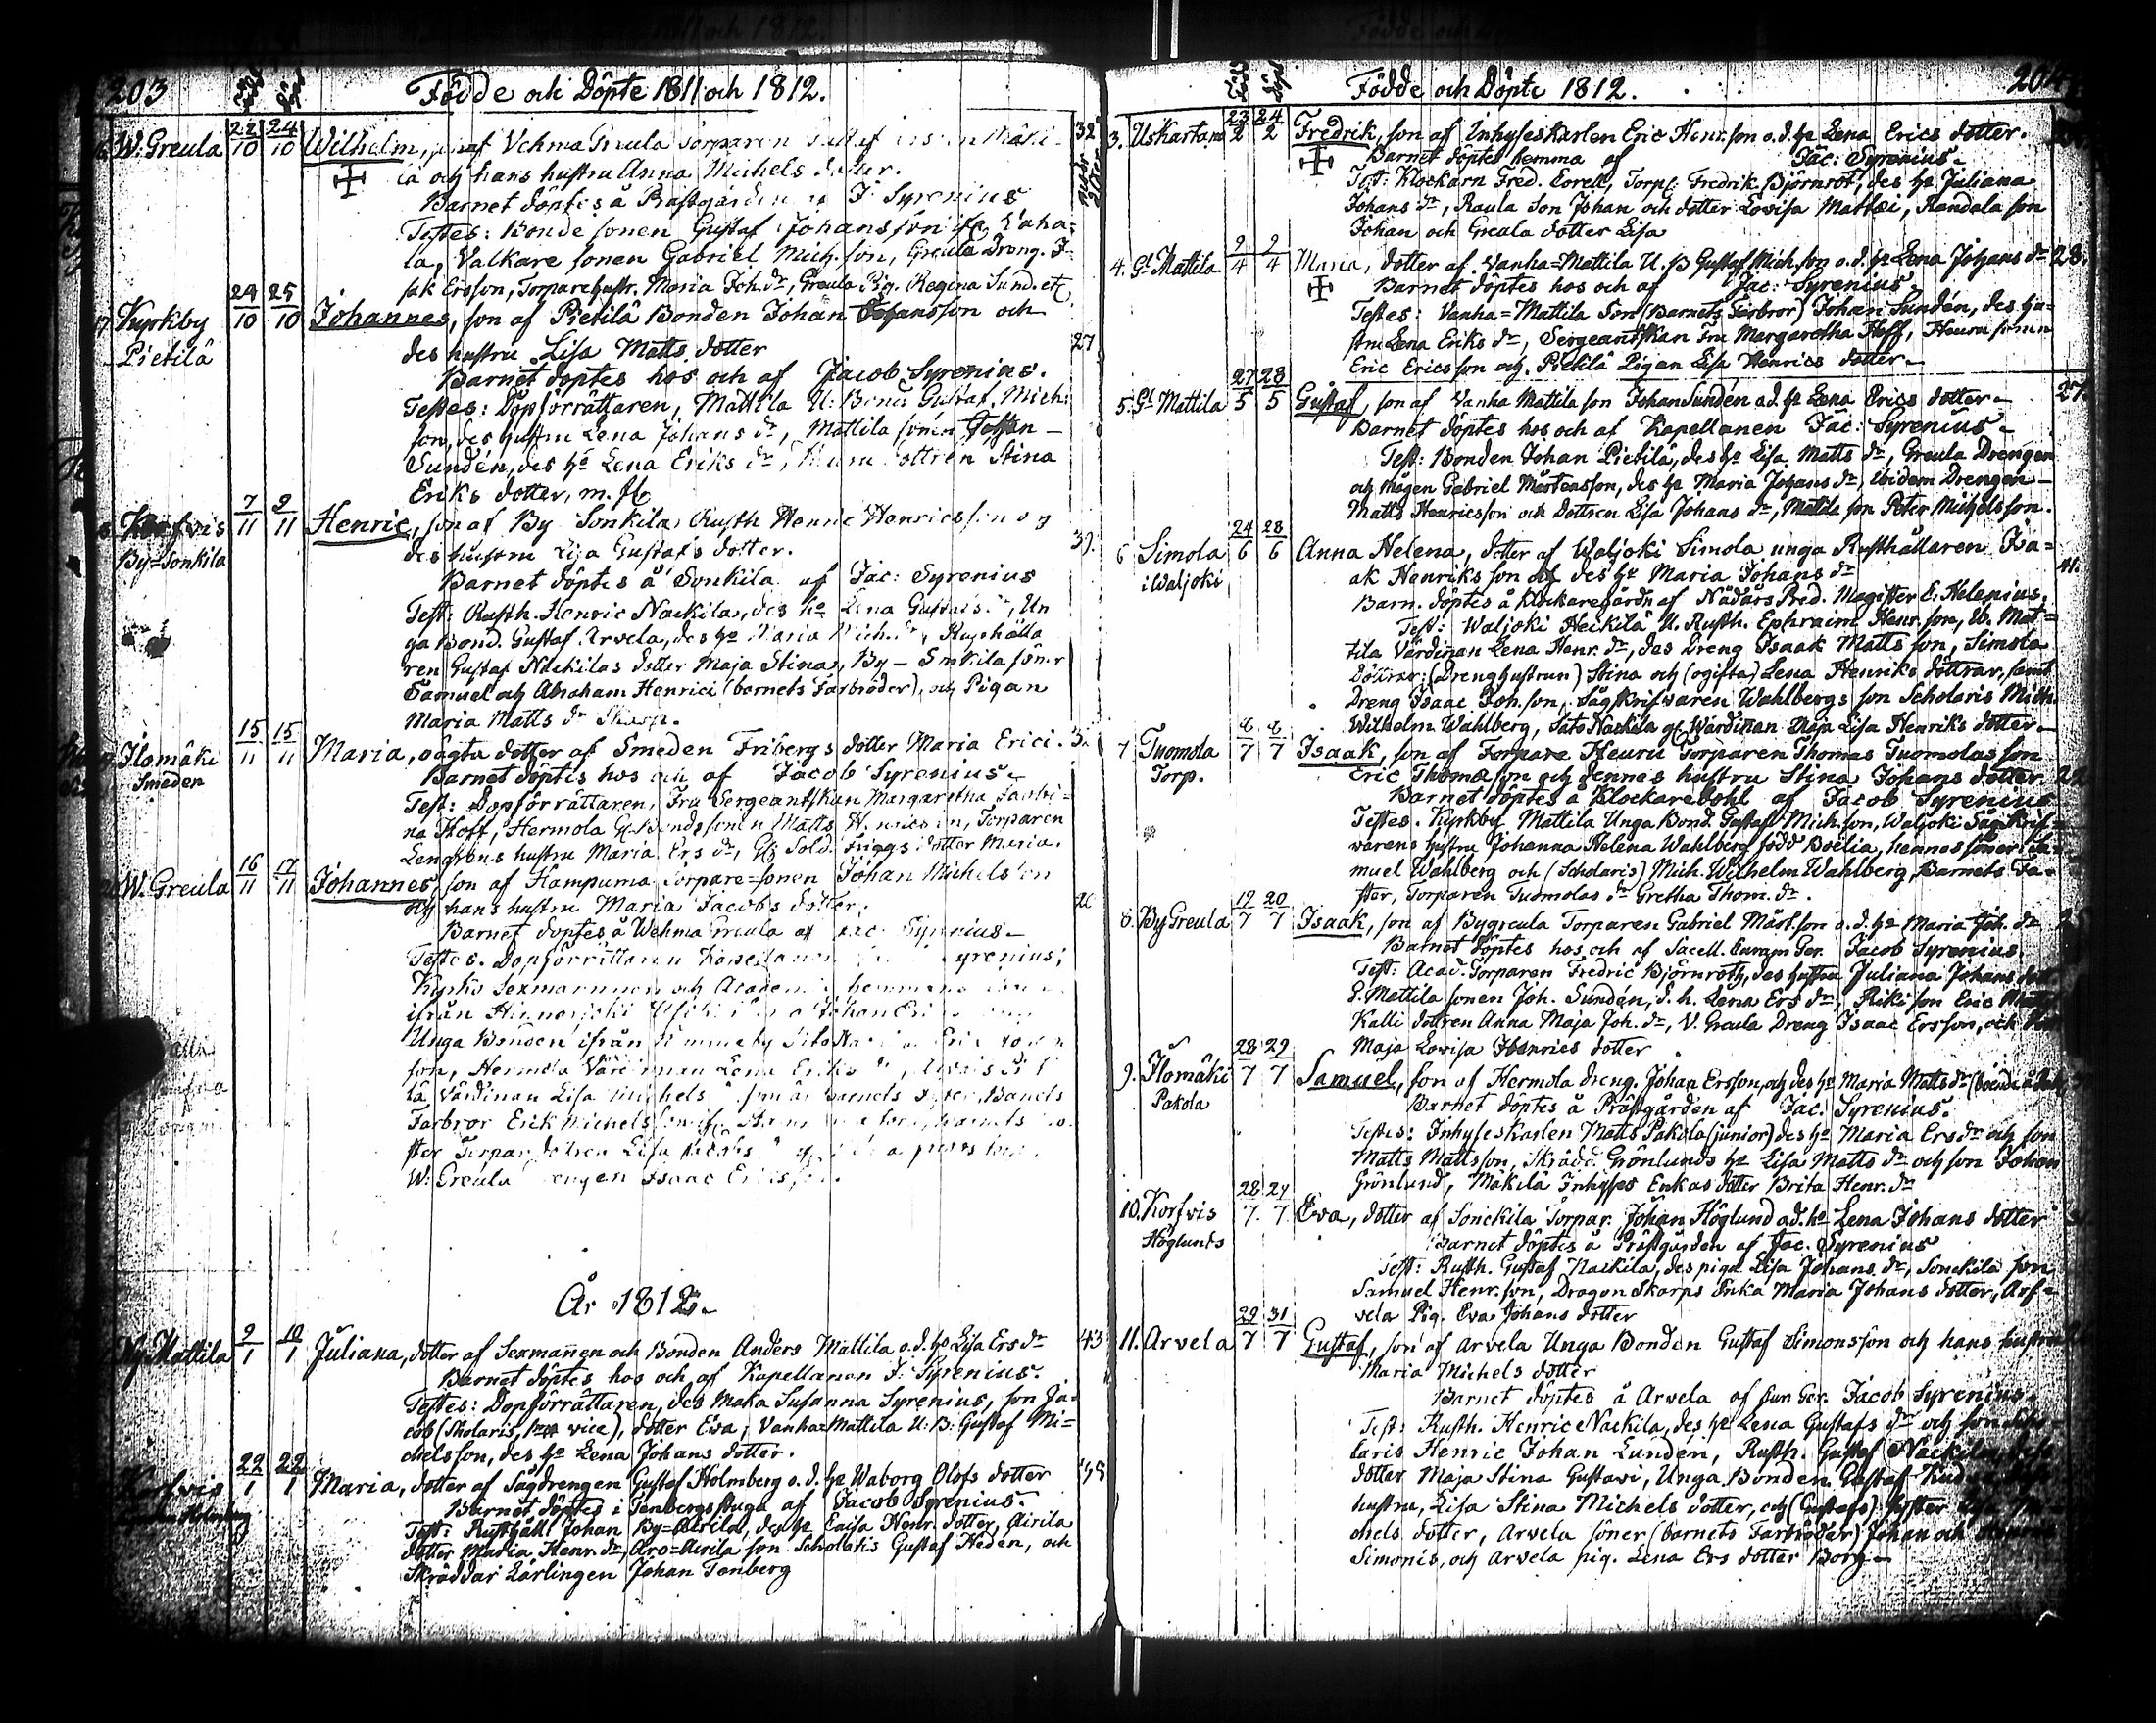 203
Födde och Döpte 1811 och 1812.
16. W. Greula 22/10 24/10 Wilhelm, af Vehma Greula Torparen
32
och hans hustru Anna Michels dotter.
Barnet döptes å Prästgården af J. Syrenius
Testes: Bonde sonen Gustaf Johansson
la, Valkare sonen Gabriel Mich. son, Greula Dreng. I-
sak Ersson, Torpare hustr. Maria Joh. dr, Greula Pig. Regina Sund. etc
17. Kyrkby 24/10 25/10 Johannes, son af Pietilä Bonden Johan Johansson och
Pietilä
des hustru Lisa Matts dotter
27
Barnet döptes hos och af Jacob Syrenius.
Testes: Döpförrättaren, Mattila U: Bond Gustaf Mich:
son, des hustru Lena Johans dr, Mattila sonen Johan
Sundén, des ho Lena Eriks dr, dottren Stina
Eriks dotter, m. fl.
18. Korfvis 7/11 9/11 Henric, son af By Sonkila Rusth Henric Henricsson og
By-Sonkila
des hustru Lisa Gustafs dotter.
39.
Barnet döptes å Sonkila af Jac: Syrenius
Test: Rusth. Henric Nackila, des ho Lena Gustafs dr, Un
ga Bond. Gustaf Arvela, des ho Maria Mich. dr, Rusthålla
ren Gustaf Nackilas dotter Maja Stina, By-Sonkila söner
Samuel och Abraham Henrici (barnets Farbröder), och Pigan
Maria Matts dr Skarp.
Ilomäki 15/11 15/11 Maria, oägta dotter af Smeden Fribergs dotter Maria Erici.
Smeden
Barnet döptes hos och af Jacob Syrenius.
Test: Döpförrättaren, Fru Sergeantskan Margaretha
na Hoff, Hermola Gl. Bondesonen Matts Henricsson, Torparen
Lengrens hustru Maria Ers dr, Gl. Sold. Friggs dotter Maria.
W. Greula 16/11 17/11 Johannes, son af Hampuma Torpare-sonen Johan Michelsson
och hans hustru Maria Jacobs dotter.
26
Barnet döptes å Wehma Greula af Jac. Syrenius
Testes. Döpförrättaren Kapellanen Syrenius,
Kyrko Sexmannen och
ifrån Johan
Unga Bonden ifrån
son, Hermola Värdinnan Lena Eriks dr,
Värdinan Lisa Michels barnets
Farbror Erik Michelsson
ster Torpare dottren Lisa Jacobs
W: Greula Drengen Isaac Ericsson.
År 1812.
Ny Mattila 9/1 10/1 Juliana, dotter af Sexmanen och Bonden Anders Mattila o. d. ho Lisa Ers dr
43
Barnet döptes hos och af Kapellanen J: Syrenius.
Testes: Dopförrättaren, des Maka Susanna Syrenius, son Ja-
cob (Scholaris, vice), dotter Eva, Vanha-Mattila U: B: Gustaf Mi=
chelsson, des ho Lena Johans dotter.
Korfvis 22/1 22/1 Maria, dotter af Sågdrengen Gustaf Holmberg o. d. ho Waborg Olofs dotter
Holmberg
Barnet döptes i Tenbergs stuga af Jacob Syrenius.
Test: Rusthåll Johan By=Airila, des ho Caisa Henr. dotter, Airila
dotter Maria Henr. dr, Aro=Airila son Scholaris Gustaf Hedén, och
Skräddar Lärlingen Johan Tenberg
204
Födde och Döpte 1812.
3. Uskartano 23/2 24/2 Fredrik, son af Inhyseskarlen Eric Henr. son o. d. ho Lena Erics dotter.
Barnet döptes hemma af Jac: Syrenius
Test: Klockarn Fred. Corell, Torp. Fredrik Björnrot, des ho Juliana
Johans dr, Raula Son Johan och dotter Lowisa Mattæi, Randala son
Johan och Greula dotter Lisa
4. Gl. Mattila 9/4 9/4 Maria, dotter af Vanha=Mattila U. B Gustaf Mich. son o. d. ho Lena Johans dr 28.
Barnet döptes hos och af Jac: Syrenius.
Testes: Vanha=Mattila Son (Barnets Farbror) Johan Sundén, des hu=
stru Lena Eriks dr, Sergeantskan Fru Margaretha Hoff, Heuru sonen
Eric Ericsson och Pietilä Pigan Lisa Henrics dotter
5. Gl. Mattila 27/5 28/5 Gustaf, son af Vanha Mattila son Johan Sundén o. d. ho Lena Erics dotter
27.
Barnet döptes hos och af Kapellanen Jac: Syrenius
Test: Bonden Johan Pietilä, des ho Lisa Matts dr, Greula Drengen
och mågen Gabriel Mårtensson, des ho Maria Johans dr, ibidem Drengen
Matts Henricsson och Dottren Lisa Johans dr, Mattila son Peter Michelsson.
6 Simola 24/6 28/6 Anna Helena, dotter af Waljoki Simola unga Rusthållaren Isa=
i Waljoki
ak Henriks son och des ho Maria Johans dr
41.
Barn. döptes å Klockaregårdn af Nådårs Pred. Magister E: Helenius.
Test: Waljoki Heikilä U. Rusth. Ephraim Henr. son, ib. Mat=
tila Värdinan Lena Henr. dr, des Dreng Isaak Matts son, Simola
döttrar: (Dreng hustrun) Stina och (ogifta) Lena Henriks döttrar, samt
Dreng Isaac Joh. son, Sågskrifvaren Wahlbergs son Scholaris Mich.
Wilhelm Wahlberg, Sato Nackila gl. Wärdinan Maja Lisa Henriks dotter
7 Tuomola 8/7 8/7 Isaak, son af Torpare Heuru Torparen Thomas Tuomolas son
Torp.
Eric Thomæson och dennes hustru Stina Johans dotter 22
Barnet döptes å Klockarebohl af Jacob Syrenius
Testes. Kyrkby Mattila Unga Bond. Gustaf Mich. son, Waljoki Sågskrif-
varens hustru Johanna Helena Wahlberg född Boelia, hennes söner Sa-
muel Wahlberg och (Scholaris) Mich. Wilhelm Wahlberg, Barnets Fa-
ster, Torparen Tuomolas dr Gretha Thom. dr.
8. By Greula 19/7 20/7 Isaak, son af Bygreula Torparen Gabriel Mårt. son o. d. ho Maria Joh. dr
Barnet döptes hos och af Sacell. Curam Ger. Jacob Syrenius.
Test: Acad. Torparen Fredric Björnroth, des hustru Juliana Johans
G. Mattila sonen Joh. Sundén, d. h. Lena Ers dr, Riki son Eric
Kalli dottren Anna Maja Joh. dr, V. Greula Dreng Isaac Ersson, och
Maja Lovisa Henrics dotter
9. Ilomäki 28/7 29/7 Samuel, son af Hermola dreng. Johan Ersson, och des ho Maria Matts dr
Pakola
Barnet döptes å Prästgården af Jac. Syrenius.
Testes: Inhyseskarlen Matts Pakola (junior) des ho Maria Ers dr och son
Matts Mattsson, Skrädd. Grönlunds ho Lisa Matts dr och son Johan
Grönlund, Mäkilä Inhyses Enkas dotter Brita Henr. dr
10. Korfvis 28/7 29/7 Eva, dotter af Sonckila Torpar. Johan Höglund o d. ho Lena Johans dotter
Höglunds
Barnet döptes å Prästgården af Jac. Syrenius
Test: Rusth. Gustaf Nackila, des piga Lisa Johans dr, Sonckila son
Samuel Henr. son, Dragon Skarps Enka Maria Johans dotter, Arf=
vela Pig. Eva Johans dotter
11. Arvela 29/7 31/7 Gustaf, son af Arvela Unga Bonden Gustaf Simonsson och hans hustru
Maria Michels dotter
Barnet döptes å Arvela af Cur. Ger. Jacob Syrenius.
Test: Rusth. Henric Nackila, des ho Lena Gustafs dr och son Scho-
laris Henric Johan Lundén, Rusth. Gustaf Nackila,
dotter Maja Stina Gustavi, Unga Bonden Gustaf
hustru, Lisa Stina Michels dotter, och (Gustafs) syster Lisa Mi-
chels dotter, Arvela söner (barnets Farbröder) Johan och
Simonis, och Arvela pig. Lena Ers dotter Borg